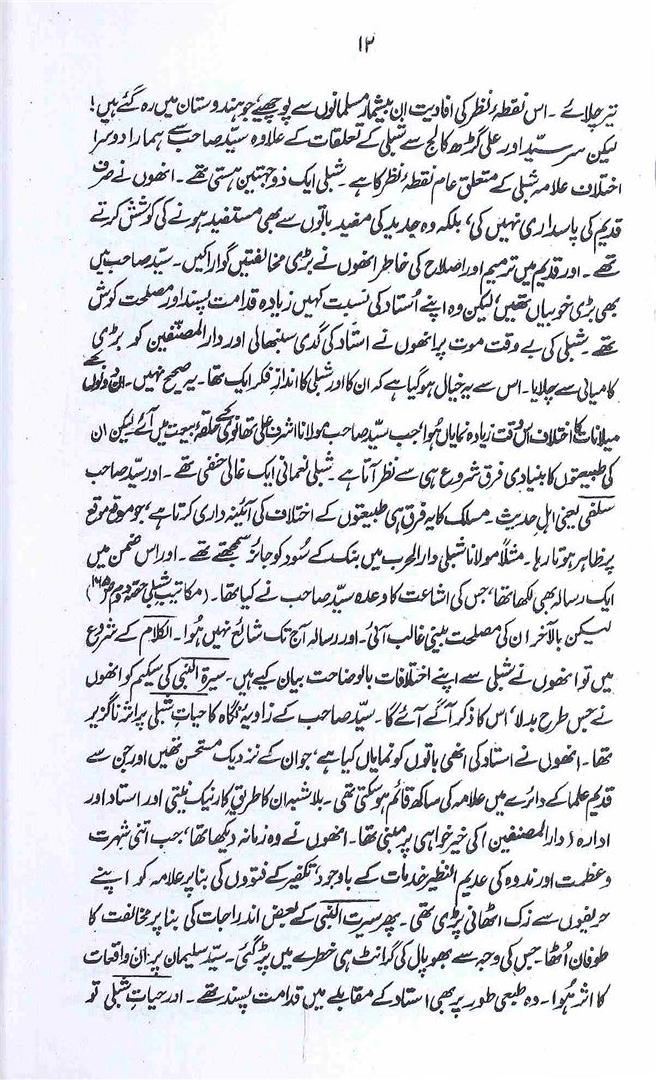 ۱۲
تیر چلائے ۔ اس نقطۂ نظر کی افادیت ان بیشمار مسلمانوں سے پوچھیے، جو ہندوستان میں رہ گئے ہیں!
لیکن سر سیّد اور علی گڑھ کالج سے شبلی کے تعلقات کے علاوہ سیّد صاحب سے ہمارا دوسرا
اختلاف علامہ شبلی کے متعلق عام نقطۂ نظر کا ہے ۔ شبلی ایک ذو جہتین ہستی تھے ۔ انھوں نے صرف
قدیم کی پاسداری نہیں کی، بلکہ وہ جدید کی مفید باتوں سے بھی مستفید ہونے کی کوشش کرتے
تھے ۔ اور قدیم میں ترمیم اور اصلاح کی خاطر انھوں نے بڑی مخالفتیں گوارا کیں ۔ سیّد صاحب میں
بھی بڑی خوبیاں تھیں، لیکن وہ اپنے اُستاد کی نسبت کہیں زیادہ قدامت پسند اور مصلحت کوش
تھے ۔ شبلی کی بے وقت موت پر انھوں نے استاد کی گدی سنبھالی اور دار المصنّفین کو بڑی
کامیابی سے چلایا ۔ اس سے یہ خیال ہو گیا ہے کہ ان کا اور شبلی کا اندازِ فکر ایک تھا ۔ یہ صحیح نہیں ۔ ان دونوں کے
میلانات کا اختلاف اس وقت زیادہ نمایاں ہُوا، جب سیّد صاحب مولانا اشرف علی تھانوی کے حلقۂ بیعت میں آئے لیکن ان
کی طبیعتوں کا بنیادی فرق شروع ہی سے نظر آتا ہے ۔ شبلی نعمانی ایک غالی حنفی تھے ۔ اور سیّد صاحب
سلفی یعنی اہلِ حدیث ۔ مسلک کا یہ فرق ہی طبیعتوں کے اختلاف کی آئینہ داری کرتا ہے، جو موقع موقع
پر ظاہر ہوتا رہا ۔ مثلاً مولانا شبلی دار الحرب میں بنک کے سُود کو جائز سمجھتے تھے ۔ اور اس ضمن میں
ایک رسالہ بھی لکھا تھا، جس کی اشاعت کا وعدہ سیّد صاحب نے کیا تھا ۔ (مکاتیبِ شبلی حصّہ دوم ص۱۶۵)
لیکن بالآخر ان کی مصلحت بینی غالب آئی ۔ اور رسالہ آج تک شائع نہیں ہُوا ۔ الکلام کے شروع
میں تو انھوں نے شبلی سے اپنے اختلافات بالوضاحت بیان کیے ہیں ۔ سیرۃ النبی کی سکیم کو انھوں
نے جس طرح بدلا، اس کا ذکر آگے آئے گا ۔ سیّد صاحب کے زاویۂ نگاہ کا حیاتِ شبلی پر اثر ناگزیر
تھا ۔ انھوں نے استاد کی انھی باتوں کو نمایاں کیا ہے، جو ان کے نزدیک مستحسن تھیں اور جن سے
قدیم علما کے دائرے میں علامہ کی ساکھ قائم ہو سکتی تھی ۔ بلاشبہ ان کا طریقِ کار نیک نیتی اور استاد اور
ادارہ (دار المصنفین) کی خیر خواہی پر مبنی تھا ۔ انھوں نے وہ زمانہ دیکھا تھا، جب اتنی شہرت
و عظمت اور ندوہ کی عدیم النظیر خدمات کے باوجود، تکفیر کے فتووں کی بنا پر علامہ کو اپنے
حریفوں سے زک اٹھانی پڑی تھی ۔ پھر سیرت النبی کے بعض اندراجات کی بنا پر مخالفت کا
طوفان اُٹھا ۔ جس کی وجہ سے بھوپال کی گرانٹ ہی خطرے میں پڑ گئی ۔ سیّد سلیمان پر ان واقعات
کا اثر ہُوا ۔ وہ طبعی طور پر بھی استاد کے مقابلے میں قدامت پسند تھے ۔ اور حیاتِ شبلی تو